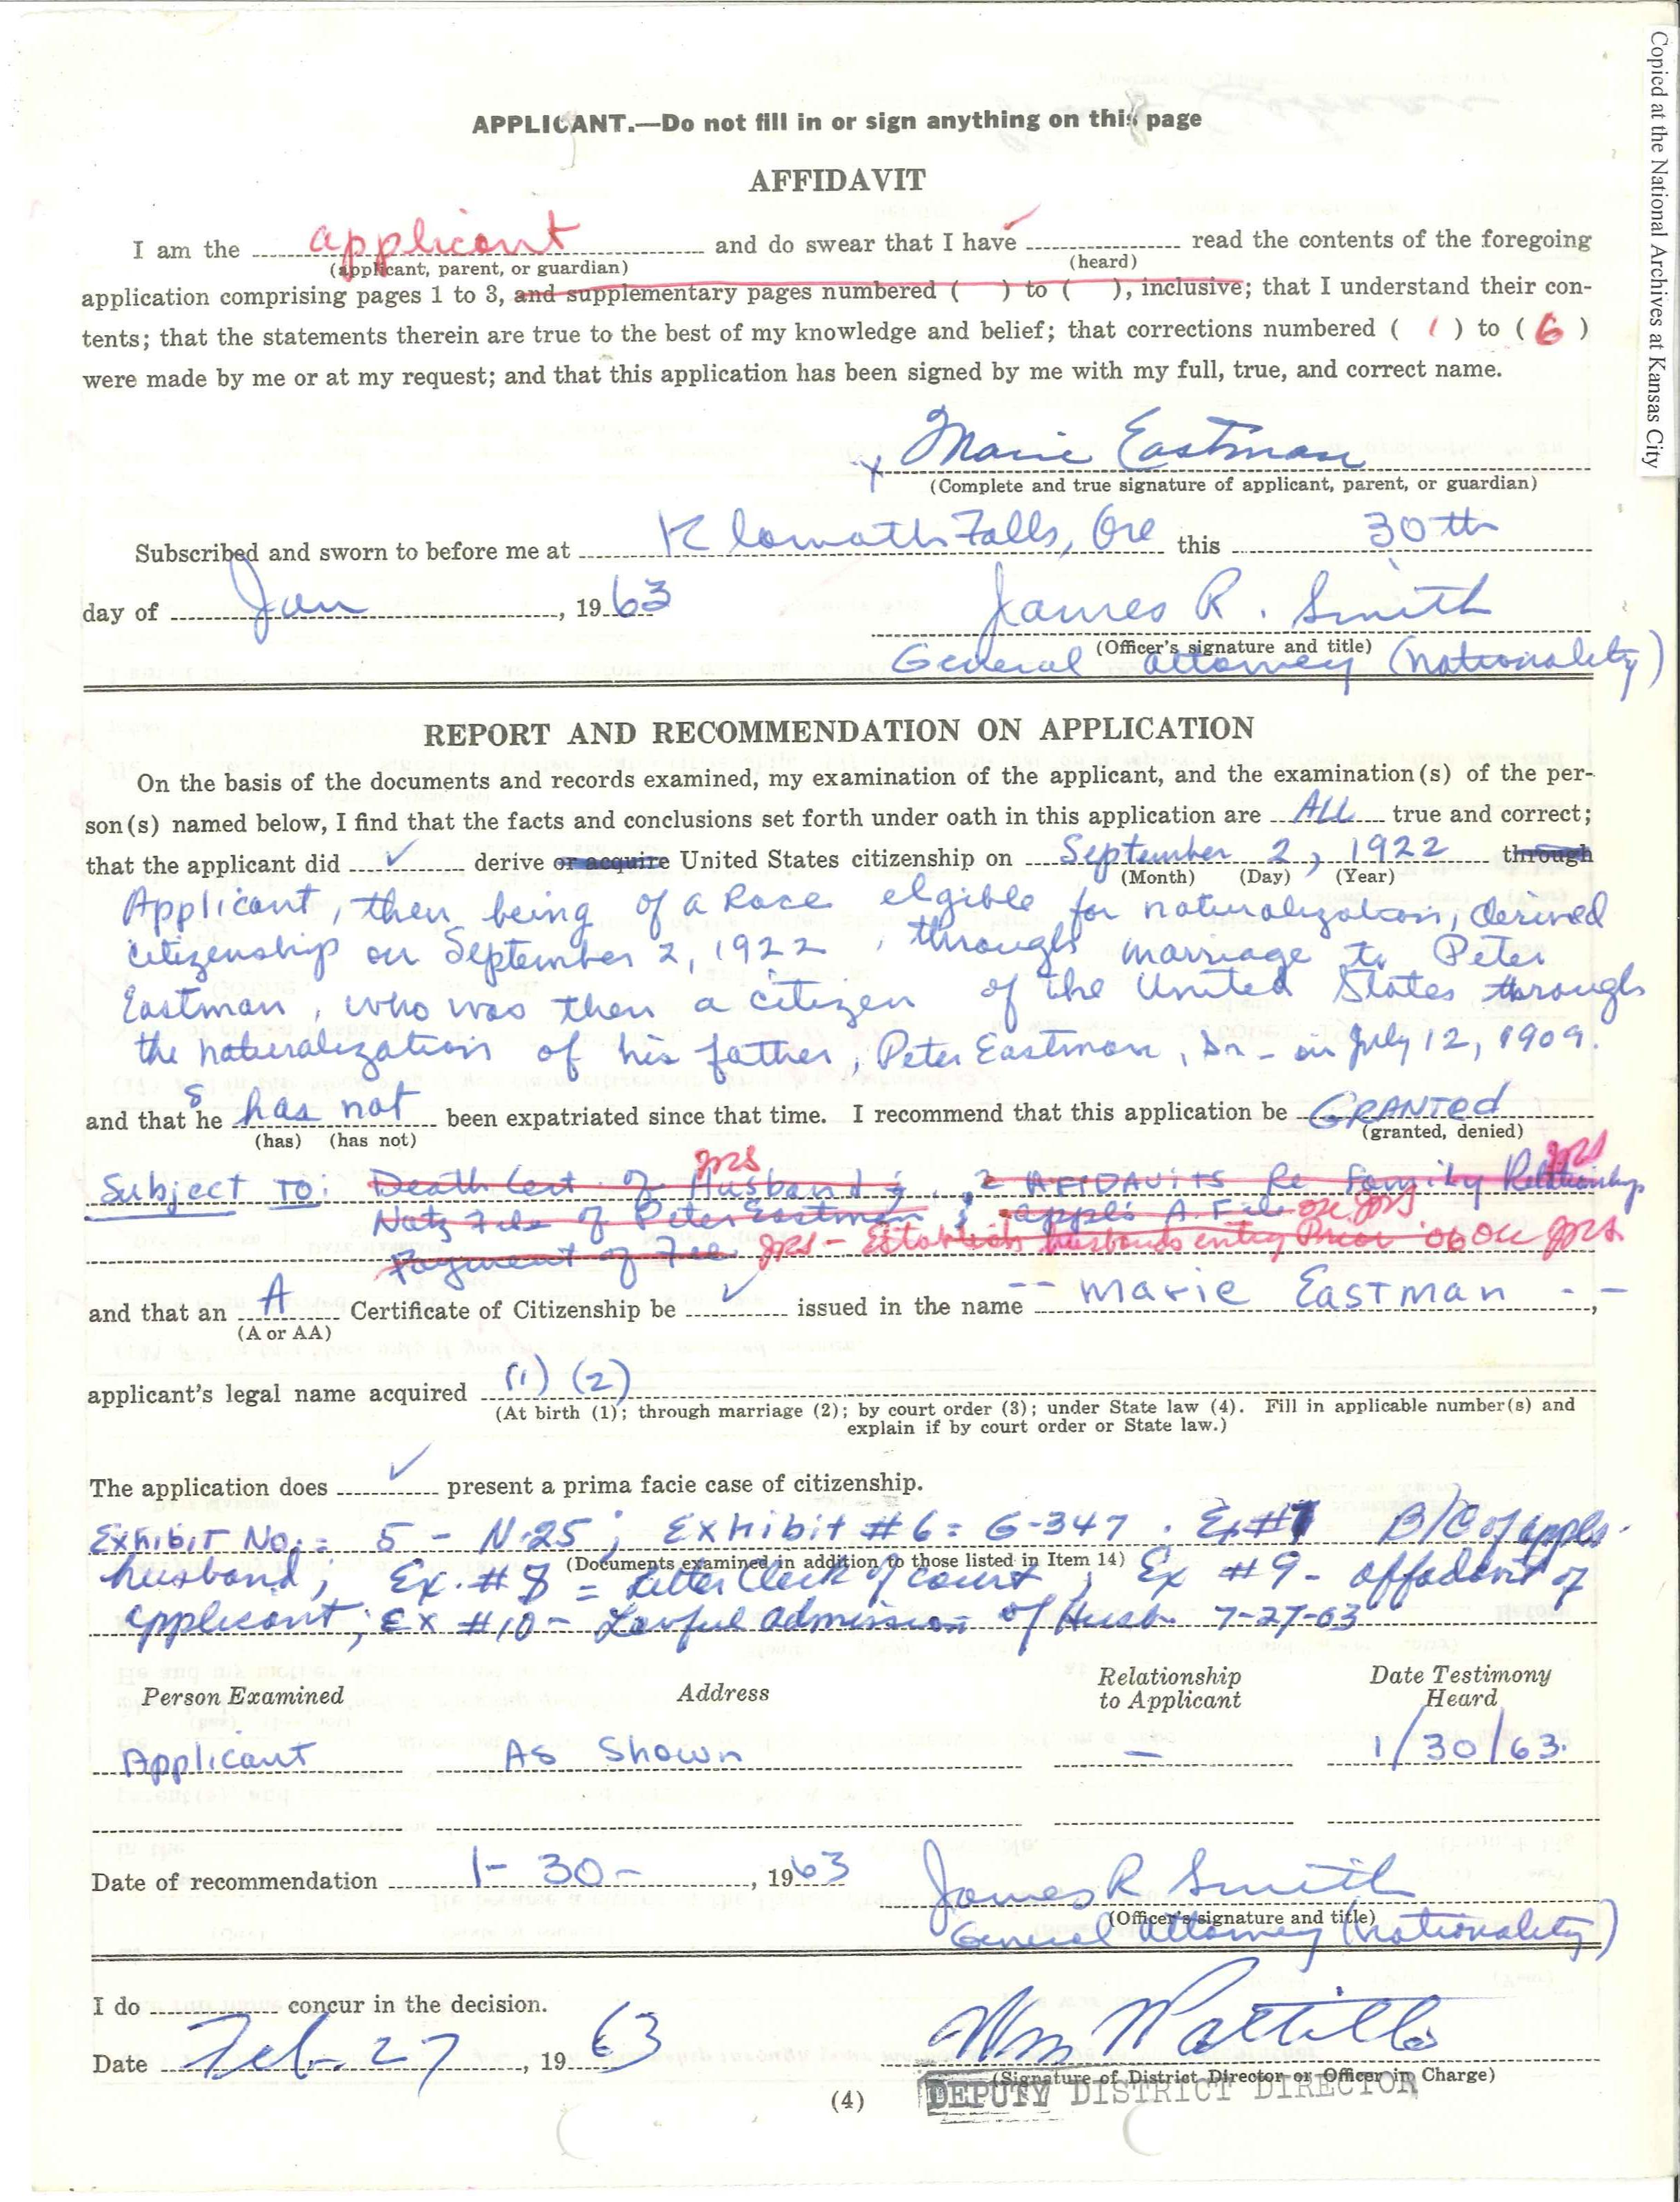 Copied at the National Archives at Kansas City
APPLICANT.—Do not fill in or sign anything on this page
AFFIDAVIT
I am the applicant and do swear that I have ✓ read the contents of the foregoing
(applicant, parent, or guardian) (heard)
application comprising pages 1 to 3, and supplementary pages numbered ( ) to ( ), inclusive; that I understand their con-
tents; that the statements therein are true to the best of my knowledge and belief; that corrections numbered ( 1 ) to ( 6 )
were made by me or at my request; and that this application has been signed by me with my full, true, and correct name.
x Marie Eastman
(Complete and true signature of applicant, parent, or guardian)
Subscribed and sworn to before me at Klamath Falls, Ore this 30th
day of Jan, 1963 James R. Smith
(Officer's signature and title)
General Attorney (Nationality)
REPORT AND RECOMMENDATION ON APPLICATION
On the basis of the documents and records examined, my examination of the applicant, and the examination(s) of the per-
son(s) named below, I find that the facts and conclusions set forth under oath in this application are ALL true and correct;
that the applicant did ✓ derive or acquire United States citizenship on September 2, 1922 through
(Month) (Day) (Year)
Applicant, then being of a Race elgible for naturalization, derived
citizenship on September 2, 1922, through marriage to Peter
Eastman, who was then a citizen of the United States through
the naturalization of his father, Peter Eastman, Sr - on July 12, 1909.
and that s he has not been expatriated since that time. I recommend that this application be GRANTED
(has) (has not) (granted, denied)
Subject TO: Death Cert of Husband; JRS 2 AFIDAVITS Re Family Relationship JRS
Natz File of Peter Eastman; appl's A. File OK JRS
Payment of Fee JRS - Establish husbands entry Prior '06 OK JRS.
and that an A Certificate of Citizenship be ✓ issued in the name -- Marie Eastman --,
(A or AA)
applicant's legal name acquired (1) (2)
(At birth (1); through marriage (2); by court order (3); under State law (4). Fill in applicable number(s) and
explain if by court order or State law.)
The application does ✓ present a prima facie case of citizenship.
Exhibit No. = 5 - N-25; Exhibit #6 = G-347. Ex #7 B/C of appls.
(Documents examined in addition to those listed in Item 14)
husband; Ex. #8 = Letter Clerk of Court; Ex #9 - affadavit of
applicant; Ex #10 - Lawful admission of Husb. 7-27-03
Person Examined Address Relationship to Applicant Date Testimony Heard
Applicant As Shown — 1/30/63.
Date of recommendation 1-30-, 1963 James R Smith
(Officer's signature and title)
General Attorney (Nationality)
I do concur in the decision.
Date Feb. 27, 1963 Wm Pattillo
(Signature of District Director or Officer in Charge)
DEPUTY DISTRICT DIRECTOR
(4)